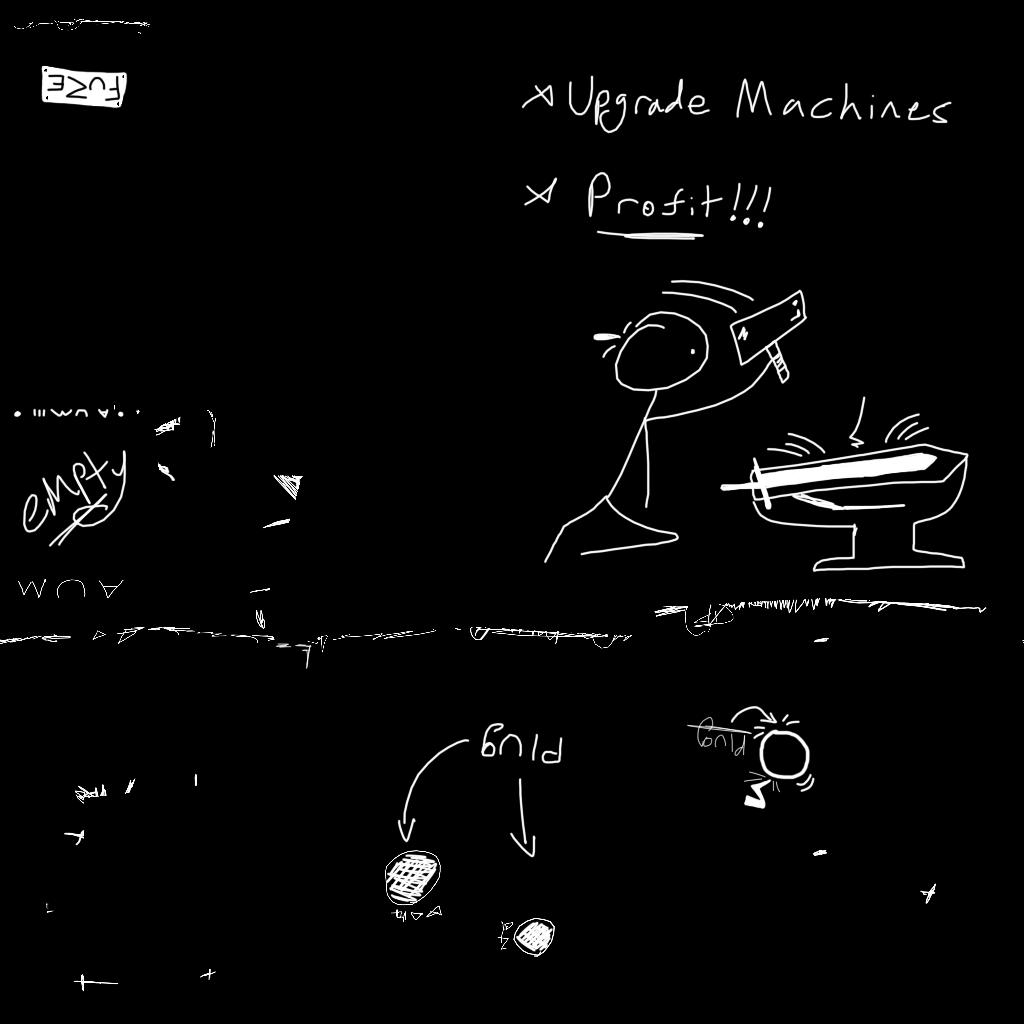 FUZE
* Upgrade Machines
* Profit!!!
empty
Plug
Plug